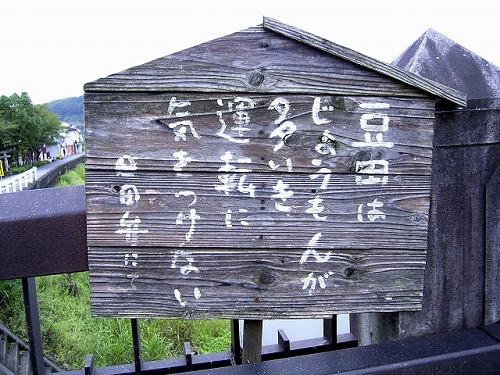 豆田は
じょうもんが
多いき
運転に
気をつけない
日田弁にて